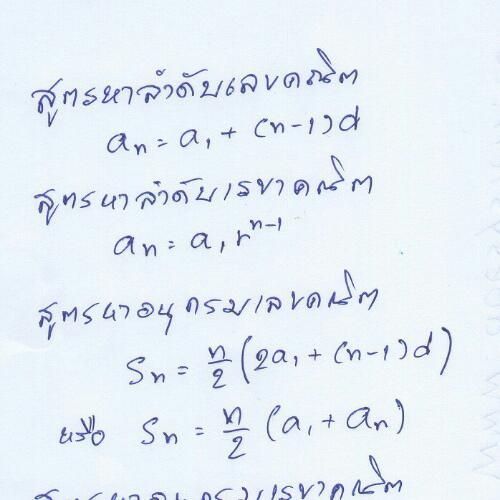 สูตรหาลำดับเลขคณิต
aₙ = a₁ + (n-1)d
สูตรหาลำดับเรขาคณิต
aₙ = a₁rⁿ⁻¹
สูตรหาอนุกรมเลขคณิต
Sₙ = n/2 (2a₁ + (n-1)d)
หรือ Sₙ = n/2 (a₁ + aₙ)
สูตรหาอนุกรมเรขาคณิต